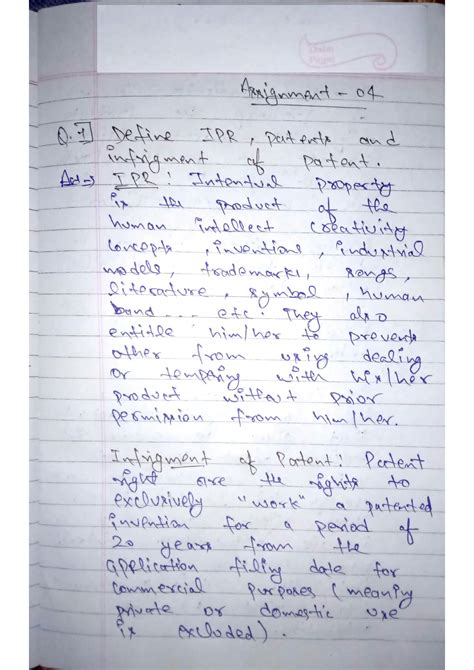 Date:
Page:
Assignment - 04
Q.1] Define IPR, patents and
infrigment of patent.
Ans→ IPR: Intentual property
is the product of the
human intellect creativity
concepts, inventions, industrial
models, trademarks, songs,
literature, symbol, human
band... etc. They also
entitle him/her to prevents
other from using dealing
or tempering with his/her
product without prior
permission from him/her.
Infrigment of Patent: Patent
right are the rights to
exclusively "work" a patented
invention for a period of
20 years from the
application filing date for
commercial purposes (meaning
private or domestic use
is excluded).